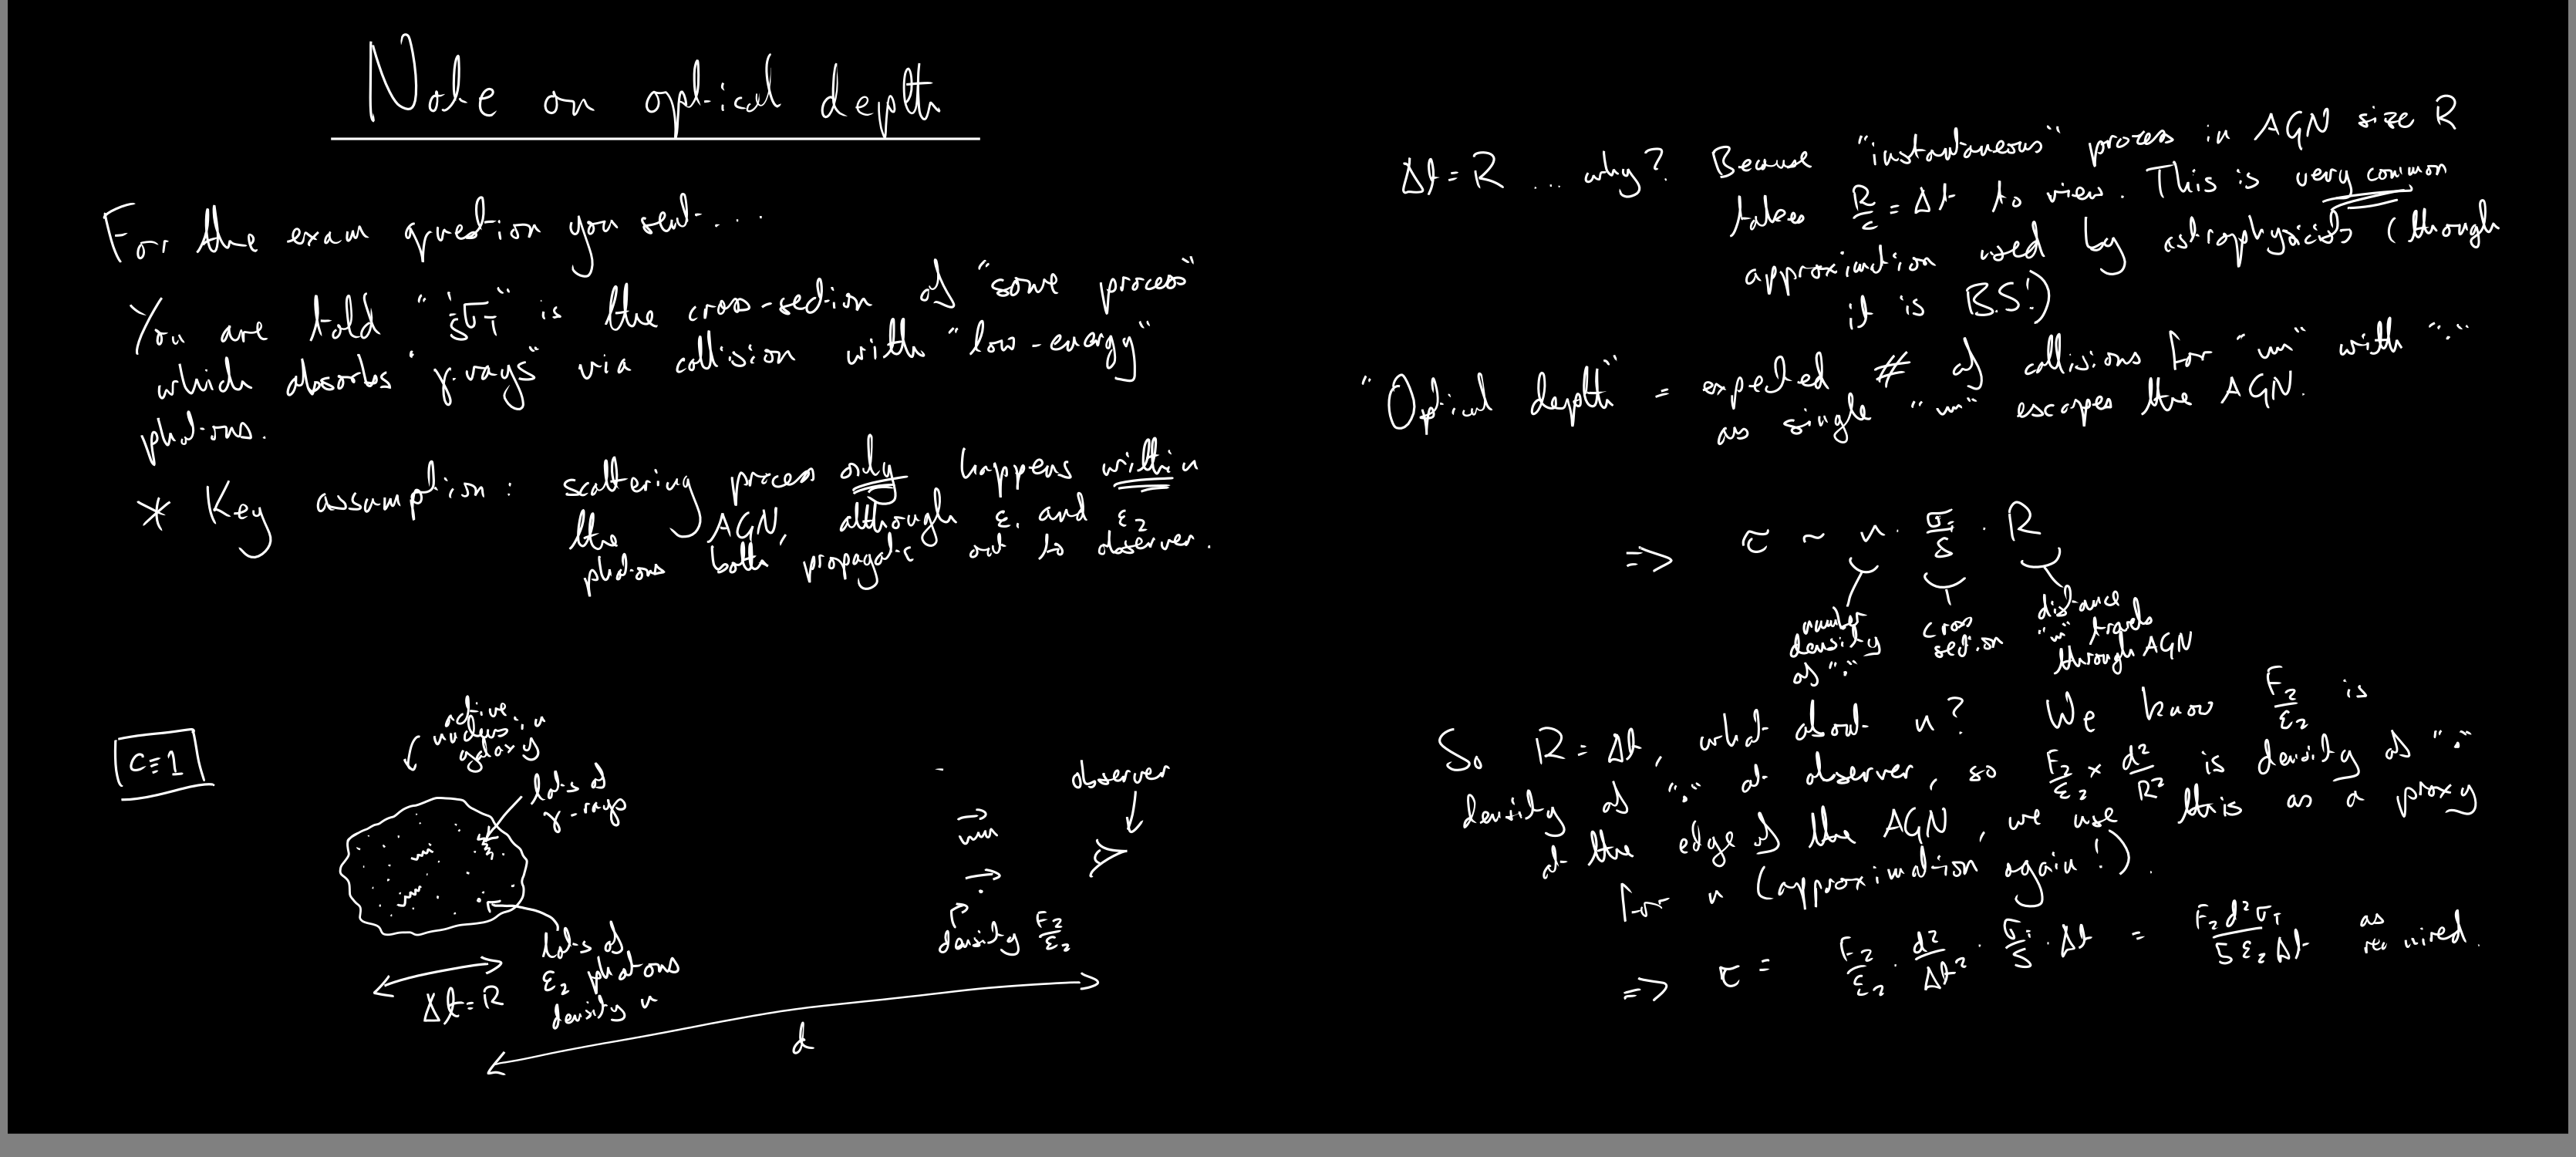 Note on optical depth
For the exam question you sent...
You are told "1/5 σ_T" is the cross-section of "some process"
which absorbs "γ-rays" via collision with "low-energy"
photons.
* Key assumption: scattering process only happens within
the AGN, although ε₁ and ε₂
photons both propagate out to observer.
c≡1
active
nucleus in
galaxy
lots of
γ-rays
lots of
ε₂ photons
density n
Δt=R
d
observer
density F₂/ε₂
Δt=R ... why? Because "instantaneous" process in AGN size R
takes R/c = Δt to view. This is very common
approximation used by astrophysicists (though
it is B.S!)
"Optical depth" = expected # of collisions for "~~" with "·"
as single "~~" escapes the AGN.
=> τ ~ n · σ_T/5 · R
number
density
of "·"
cross
section
distance
"~~" travels
through AGN
So R=Δt, what about n? We know F₂/ε₂ is
density of "·" at observer, so F₂/ε₂ × d²/R² is density of "·"
at the edge of the AGN, we use this as a proxy
for n (approximation again!).
=> τ = F₂/ε₂ · d²/Δt² · σ_T/5 · Δt = F₂d²σ_T/5ε₂Δt as
required.